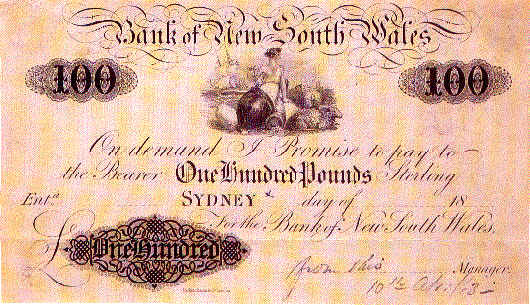 Bank of New South Wales
100 100
On demand I Promise to pay to
the Bearer One Hundred Pounds Sterling
Ent.d SYDNEY day of 18
For the Bank of New South Wales,
£ One Hundred
from this Manager.
10th